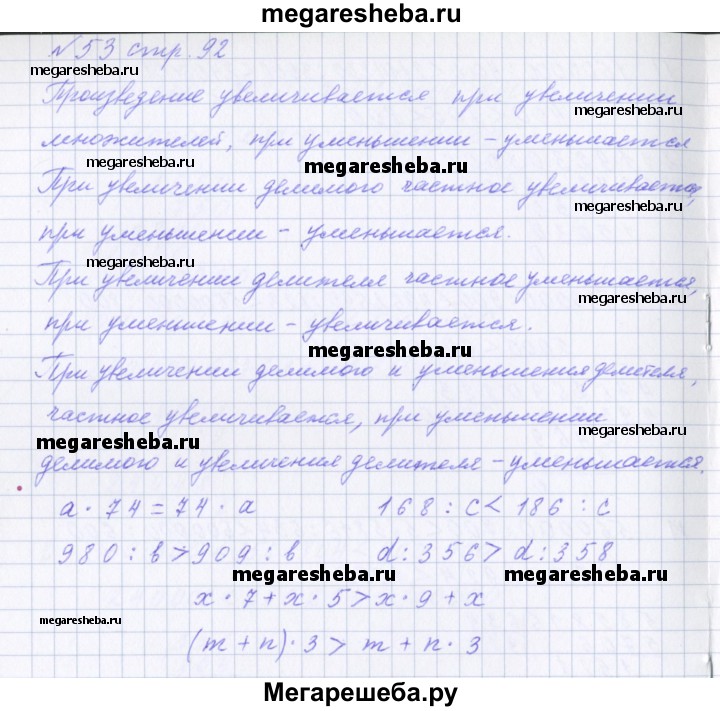 megaresheba.ru
№53 стр. 92
megaresheba.ru
Произведение увеличивается при увеличении
megaresheba.ru
множителей, при уменьшении – уменьшается
megaresheba.ru
megaresheba.ru
При увеличении делимого частное увеличивается,
megaresheba.ru
при уменьшении – уменьшается.
megaresheba.ru
При увеличении делителя частное уменьшается,
megaresheba.ru
при уменьшении – увеличивается.
megaresheba.ru
При увеличении делимого и уменьшения делителя,
частное увеличивается, при уменьшении
megaresheba.ru
megaresheba.ru
делимого и увеличения делителя – уменьшается.
a · 74 = 74 · a 168 : c < 186 : c
980 : b > 909 : b d : 356 > d : 358
megaresheba.ru megaresheba.ru
x · 7 + x · 5 > x · 9 + x
megaresheba.ru
(m + n) · 3 > m + n · 3
Мегарешеба.ру